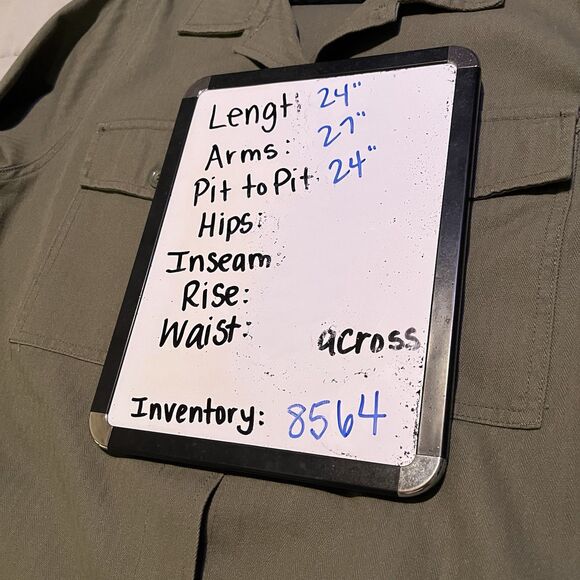 Lengt 24"
Arms: 27"
Pit to Pit 24"
Hips:
Inseam
Rise:
Waist: across
Inventory: 8564